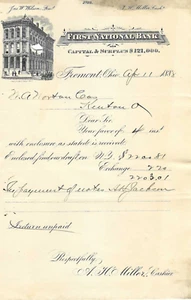 Jas. W. Wilson, Pres't.
A. H. Miller, Cash'r.
FIRST NATIONAL BANK
CAPITAL & SURPLUS $121,000.
Fremont, Ohio, Apr 11 1888
W A Norton Esq
Kenton O
Dear Sir
Your favor of 4 inst
with enclosure as stated is received.
Enclosed find our draft on N.Y. $
Exchange 2 20
2203.01
In payment of notes
unpaid
Respectfully,
A. H. Miller, Cashier